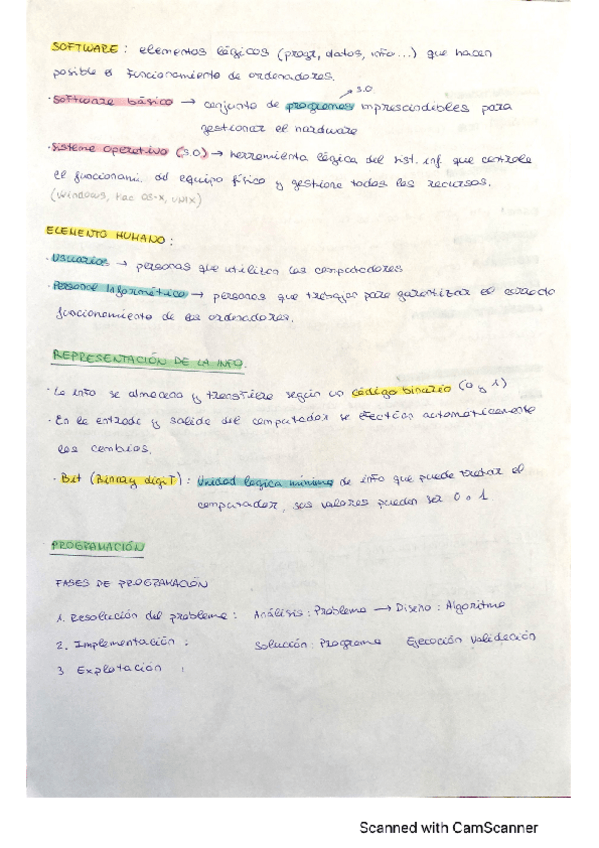 SOFTWARE: elementos lógicos (progr, datos, info...) que hacen
posible el funcionamiento de ordenadores.
S.O.
· Software básico → conjunto de programas imprescindibles para
gestionar el hardware
· Sistema operativo (S.O) → herramienta lógica del sist. inf que controla
el funcionami. del equipo físico y gestiona todos los recursos.
(Windows, Mac OS-X, UNIX)
ELEMENTO HUMANO:
· Usuarios → personas que utilizan las computadores
· Personal Informático → personas que trabajan para garantizar el correcto
funcionamiento de los ordenadores.
REPRESENTACIÓN DE LA INFO.
· La info se almacena y transfiere según un código binario (0 y 1)
· En la entrada y salida del computador se efectúan automáticamente
los cambios.
· Bit (Binary digiT): Unidad lógica mínima de info que puede tratar el
computador, sus valores pueden ser 0 o 1
PROGRAMACIÓN
FASES DE PROGRAMACIÓN
1. Resolución del problema: Análisis: Problema → Diseño: Algoritmo
2. Implementación: Solución: Programa Ejecución Validación
3 Explotación :
Scanned with CamScanner